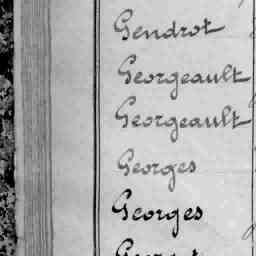 Gendrot
Georgeault
Georgeault
Georges
Georges